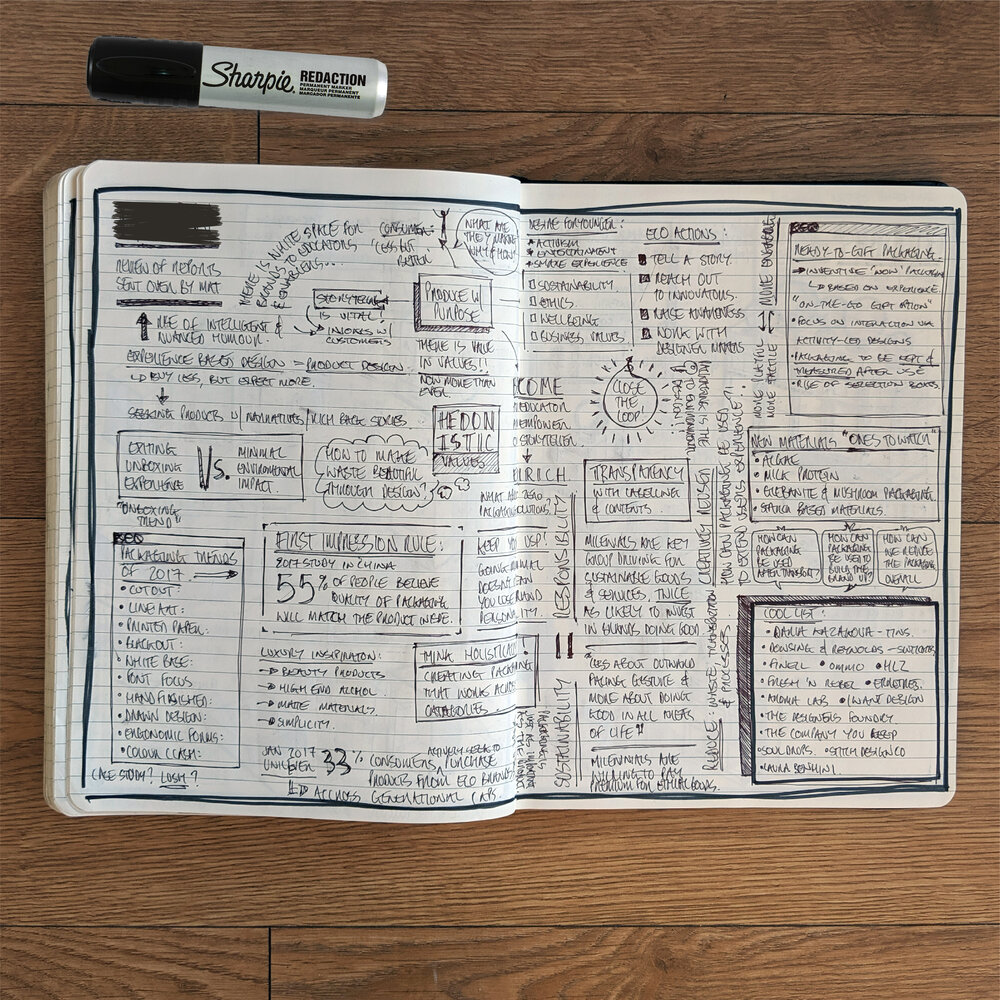 Sharpie. REDACTION
PERMANENT MARKER
MARQUEUR PERMANENT
MARCADOR PERMANENTE
REVIEW OF REPORTS
SENT OVER BY MAT
THERE IS WHITE SPACE FOR
BRANDS TO EDUCATORS
CONSUMER:
"LESS BUT
BETTER
WHAT ARE
THEY MAKING
WHY & HOW
STORYTELLING
IS VITAL!
INVOLVES W/
CUSTOMERS
PRODUCE W/
PURPOSE
RISE OF INTELLIGENT &
NUANCED HUMOUR.
THERE IS VALUE
IN VALUES!!
NOW MORE THAN
EVER.
EXPERIENCE BASED DESIGN = PRODUCT DESIGN.
BUY LESS, BUT EXPECT MORE.
SEEKING PRODUCTS W/ NARRATIVES/RICH BACK STORIES
HEDON
ISTIC
VALUES
EXITING
UNBOXING
EXPERIENCE
Vs.
MINIMAL
ENVIROMENTAL
IMPACT.
"UNBOXING
TREND"
HOW TO MAKE
WASTE BEAUTIFUL
THROUGH DESIGN?
PACKAGING TRENDS
OF 2017
• CUT OUT:
• LINE ART:
• PRINTED PAPER:
• BLACKOUT:
• WHITE BASE:
• FONT FOCUS
• HAND FINISHED:
• DRAWN DESIGN:
• ERGONOMIC FORMS:
• COLOUR CLASH:
CASE STUDY? LUSH?
FIRST IMPRESSION RULE:
2017 STUDY IN CHINA
55% OF PEOPLE BELIEVE
QUALITY OF PACKAGING
WILL MATCH THE PRODUCT INSIDE.
LUXURY INSPIRATION:
→ BEAUTY PRODUCTS
→ HIGH END ALCOHOL.
→ MATTE MATERIALS.
→ SIMPLICITY.
JAN 2017
UNILEVER 33% CONSUMERS
ACTIVELY SEEK TO
PURCHASE
PRODUCTS FROM ECO BRANDS
ACCROSS GENERATIONAL GAPS.
KEEP YOU USP!
GOING MINIMAL
DOESN'T MEAN
YOU LOSE BRAND
PERSONALITY.
THINK HOLISTICALLY
CREATING PACKAGING
THAT WORKS ACROSS
CATAGORIES
DESIRE FOR YOUNGER:
• ACTIVISM
• ENTERTAINMENT
• SHARE EXPERIENCE
SUSTAINABILITY
ETHICS.
WELLBEING
BUSINESS VALUES.
COME
EDUCATOR
EMPOWER
STORYTELLER.
ENRICH.
ECO ACTIONS:
TELL A STORY.
REACH OUT
TO INNOVATORS.
RAISE AWARENESS
WORK WITH
DESIGNER MAKERS
CLOSE
THE
LOOP!
TRANSPARENCY
WITH LABELLING
& CONTENTS.
SUSTAINABILITY = RESPONSIBILITY
MILENIALS ARE KEY
GROUP DRIVING FOR
SUSTAINABLE GOODS
& SERVICES, TWICE
AS LIKELY TO INVEST
IN BRANDS DOING GOOD.
"LESS ABOUT OUTWARD
FACING GESTURE &
MORE ABOUT DOING
GOOD IN ALL AREAS
OF LIFE"
MILENNIALS ARE
WILLING TO PAY
PREMIUM FOR ETHICAL GOODS.
REDUCE: WASTE, TRANSPORTATION
& PROCESSES
CREATIVE REUSE:
HOW CAN PACKAGING BE USED
TO EXTEND USERS EXPERIENCE?!
MORE PLAYFUL
MORE TACTILE
MORE ENGAGING
READY-TO-GIFT PACKAGING
→ INVENTIVE 'WOW' PACKAGING
BASED ON EXPERIENCE
"ON-THE-GO GIFT ATION"
• FOCUS ON INTERACTION VIA
ACTIVITY LED DESIGNS
• PACKAGING TO BE KEPT &
TREASURED AFTER USE
• RISE OF SELECTION BOXES
NEW MATERIALS "ONES TO WATCH"
• ALGAE
• MILK PROTEIN
• & MUSHROOM PACKAGING
• STARCH BASED MATERIALS.
HOW CAN
PACKAGING
BE USED
AFTER TRANSPORT?
HOW CAN
PACKAGING
BE USED TO
BUILD THE
BRAND UP?
HOW CAN
WE REDUCE
PACKAGING
OVERALL
COOL LIST:
• DARIA KAZAKOVA - TINS.
• DOWSING & REYNOLDS - SWITCHES
• FINELL • OMMO • HLZ
• FRESH 'N REBEL
• AROMA LAB • I WANT DESIGN
• THE DESIGNERS FOUNDRY
• THE COMPANY YOU KEEP
• SOUL DROPS. • STITCH DESIGN CO